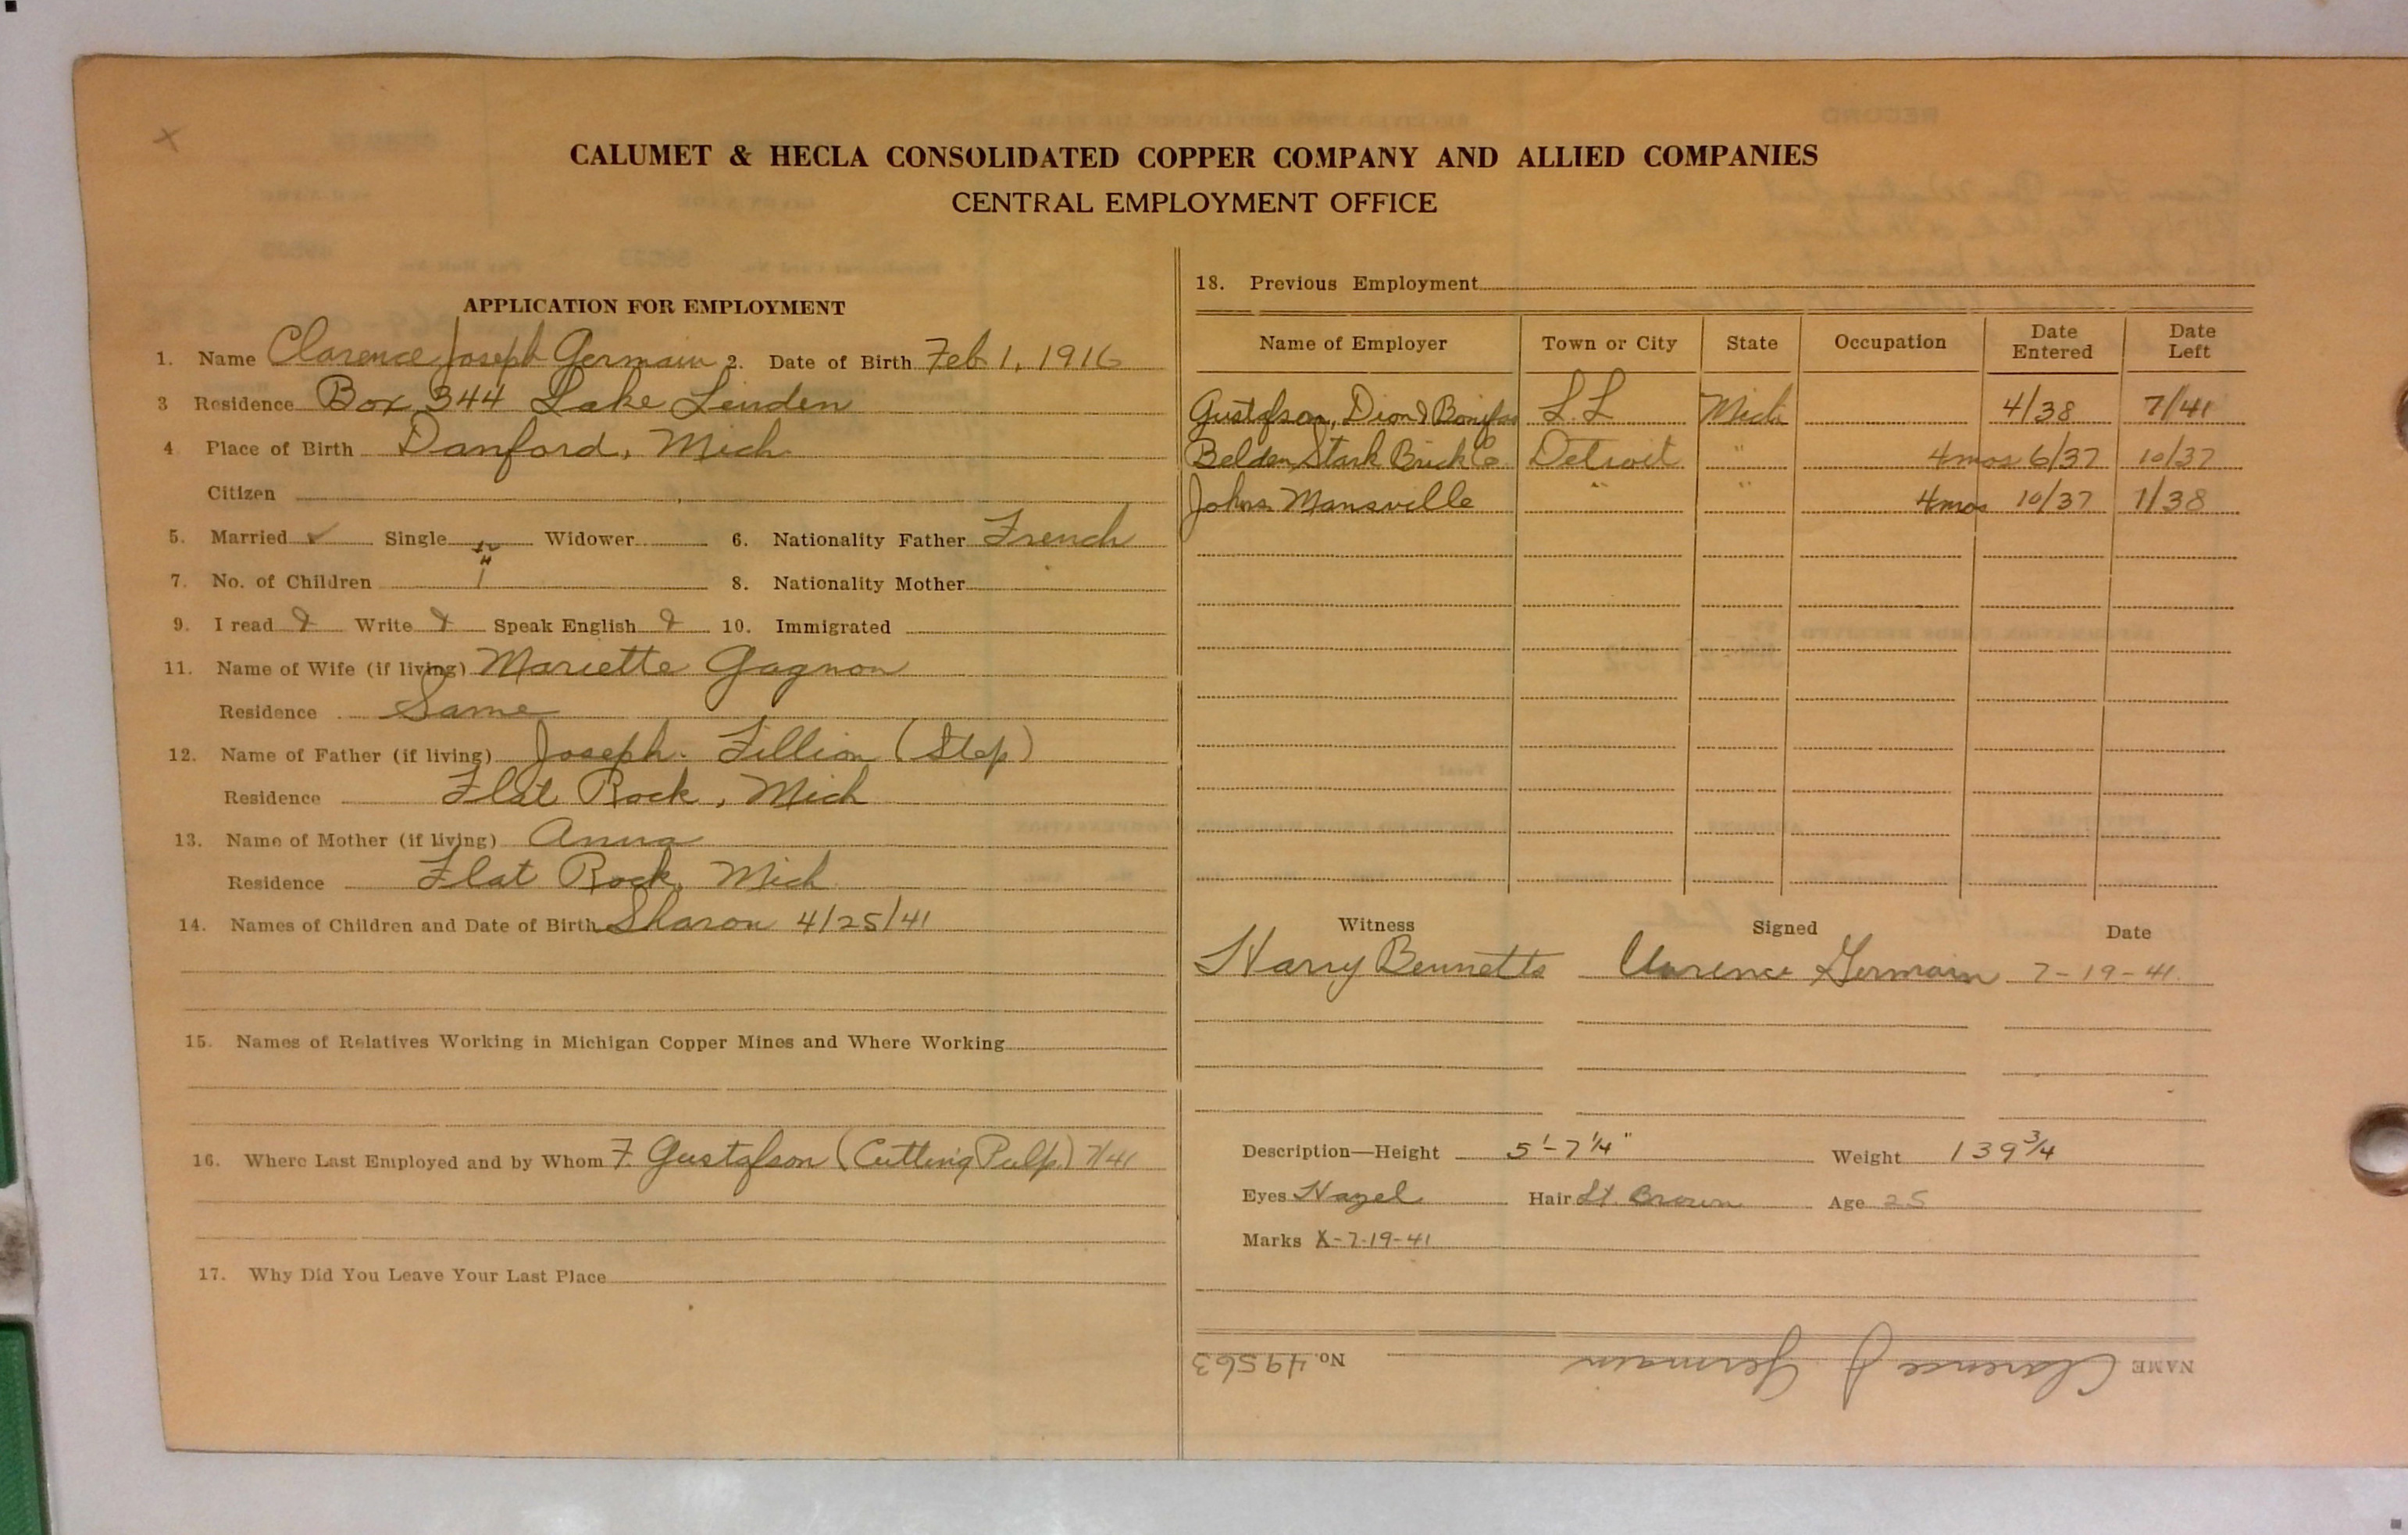 CALUMET & HECLA CONSOLIDATED COPPER COMPANY AND ALLIED COMPANIES
CENTRAL EMPLOYMENT OFFICE
APPLICATION FOR EMPLOYMENT
1. Name Clarence Joseph Germain 2. Date of Birth Feb 1, 1916
3 Residence Box 344 Lake Linden
4 Place of Birth Danford, Mich
Citizen
5. Married ✓ Single Widower 6. Nationality Father French
7. No. of Children 1 8. Nationality Mother
9. I read Write Speak English 10. Immigrated
11. Name of Wife (if living) Mariette Gagnon
Residence Same
12. Name of Father (if living) Joseph Fillion (Step)
Residence Flat Rock, Mich
13. Name of Mother (if living) Anna
Residence Flat Rock, Mich
14. Names of Children and Date of Birth Sharon 4/25/41
15. Names of Relatives Working in Michigan Copper Mines and Where Working
16. Where Last Employed and by Whom F. Gustafson (Cutting Pulp) 7/41
17. Why Did You Leave Your Last Place
18. Previous Employment
Name of Employer Town or City State Occupation Date Entered Date Left
Gustafson, Dion & Bonifas L.L Mich 4/38 7/41
Belden Stark Brick Co. Detroit " 4mos 6/37 10/37
Johns Mansville " " 4mos 10/37 1/38
Witness Signed Date
Harry Bennetts Clarence Germain 7-19-41
Description—Height 5'-7 1/4" Weight 139 3/4
Eyes Hazel Hair Lt. Brown Age 25
Marks X-7-19-41
NAME Clarence J Germain No. 49563